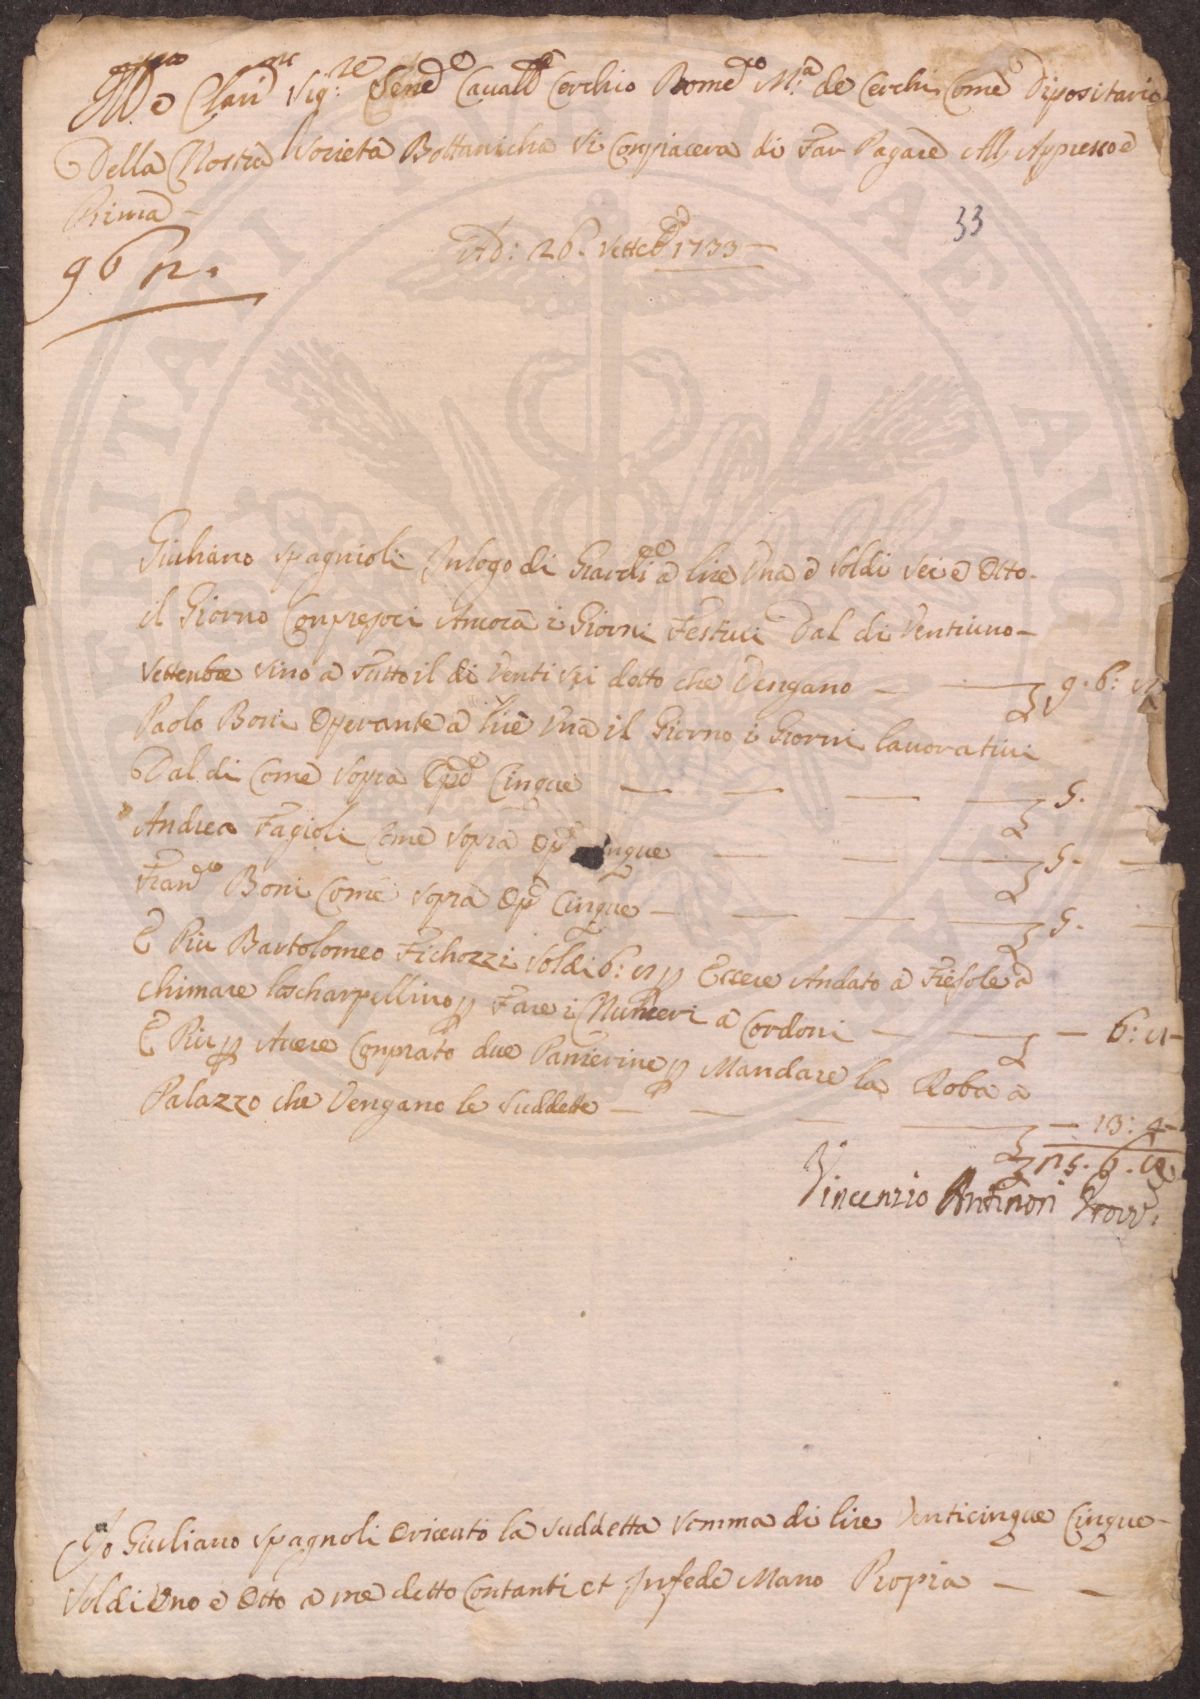 Ill.mo e Clar.mo Sig.re Sen.e Cavall.e Cerchio Rome.co M.a de Cerchi Come Dipositario
Della Nostra Società Bottanicha Si Conpiacera di Far Pagare All Appresso e
Prima
33
Ad: 26. Setteb.e 1733
96
Giuliano Spagnioli In logo di Giardi.e a lire Una e Soldi Sei e Otto
il Giorno Conpresoci Ancora i Giorni Festivi Dal di Ventiuno
Settenbre Sino a Tutto il di Venti Sei detto che Vengano 9. 6:
Paolo Boni Operante a lire Una il Giorno i Giorni lavorativi
Dal di Come Sopra Op.e Cinque 5.
Andrea Fagioli Come Sopra Op.e Cinque 5.
Fran.co Boni Come Sopra Op.e Cinque 5.
E Piu Bartolomeo Fichozzi Soldi 6: p Essere Andato a Fiesole a
Chimare lo scharpellino p Fare i Numeri a Cordoni 6:
E Piu p Avere Conprato due Panierine p Mandare la Roba a
Palazzo che Vengano le Suddette 13: 4
25. 6.
Vincenzio Antinori Provv.
Io Giuliano Spagnoli O ricieuto la Suddetta Somma di lire Venticinque Cinque
Soldi Uno e Otto a me detto Contanti et In fede Mano Propia
PERITATI PVBLICAE AVG